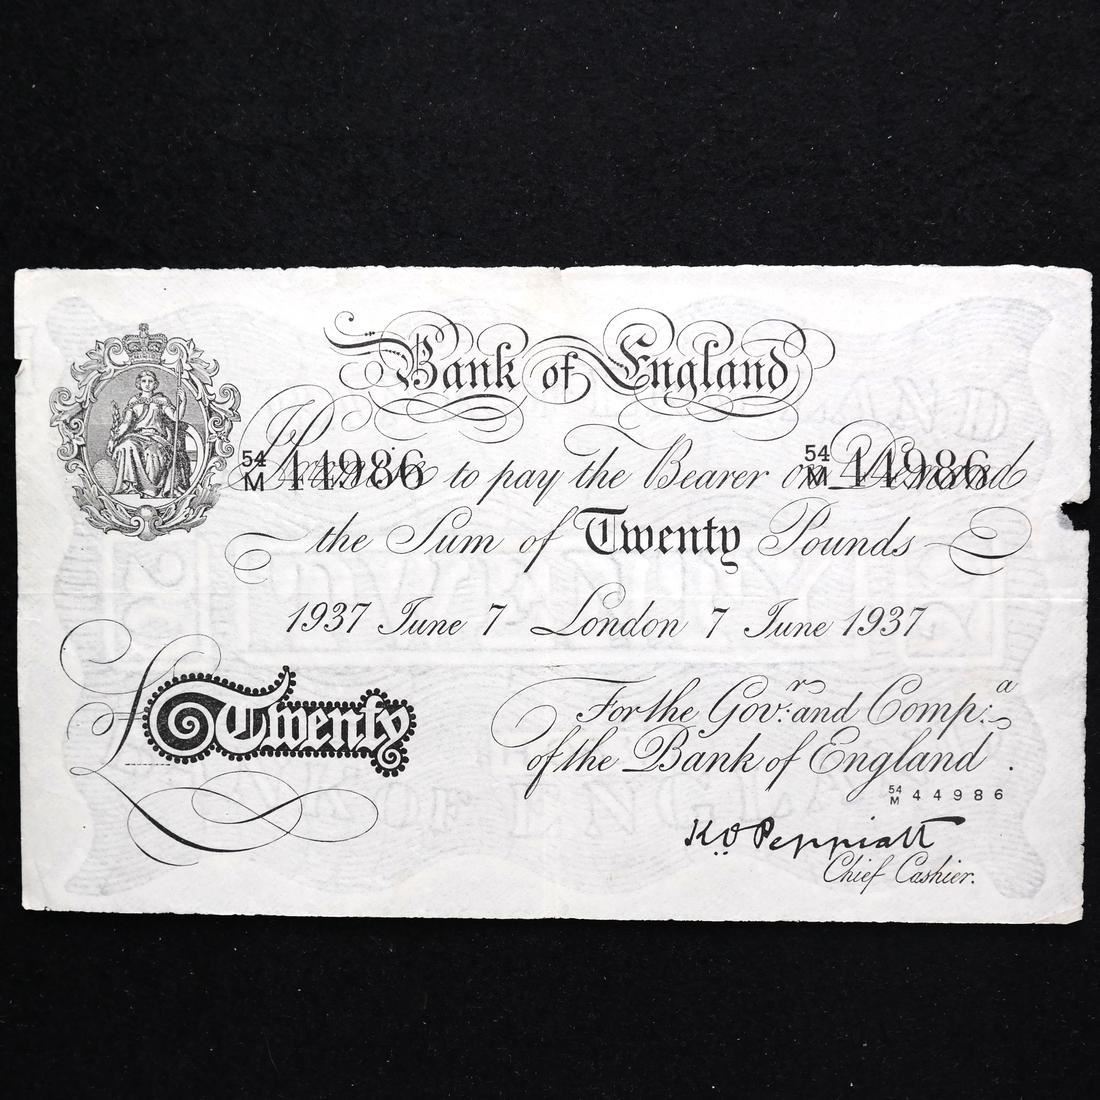 Bank of England
54/M 44986 54/M 44986
I Promise to pay the Bearer on Demand
the Sum of Twenty Pounds
1937 June 7 London 7 June 1937
For the Gov.r and Comp.a
of the Bank of England.
£Twenty
54/M 44986
K.O. Peppiatt
Chief Cashier.